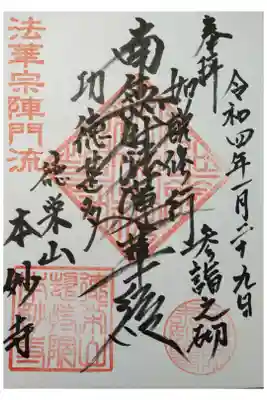 令和四年一月二十九日
奉拝
参詣之砌
如説修行
南無妙法蓮華経
功徳甚多
徳栄山
本妙寺
法華宗陣門流